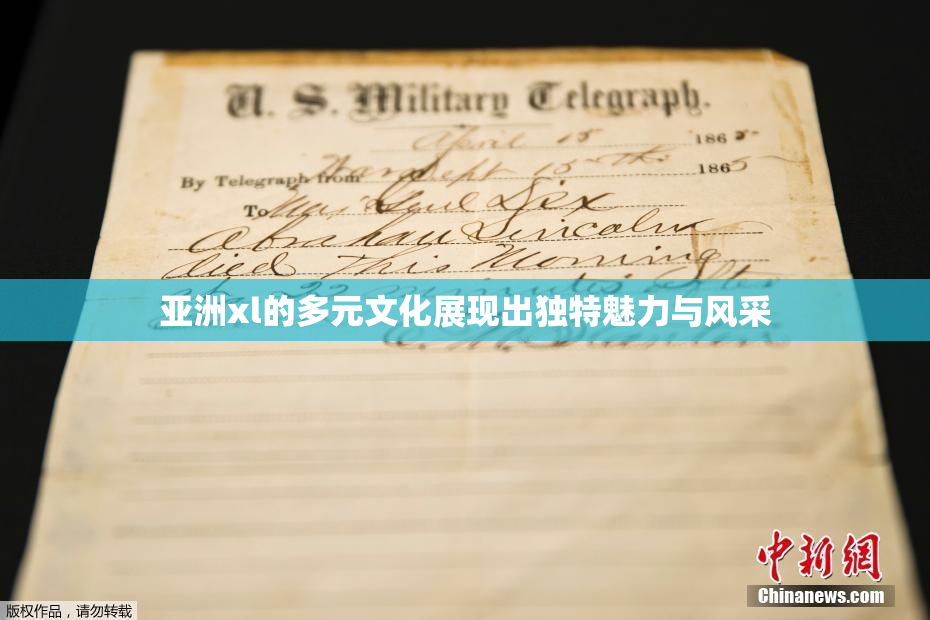 U. S. Military Telegraph.
April 15 1865
By Telegraph from War Dept 15th 1865
To Maj Genl Dix
Abraham Lincoln
died This Morning
at 22 minutes after
亚洲xl的多元文化展现出独特魅力与风采
E. M. Stanton
中新网
Chinanews.com
版权作品，请勿转载